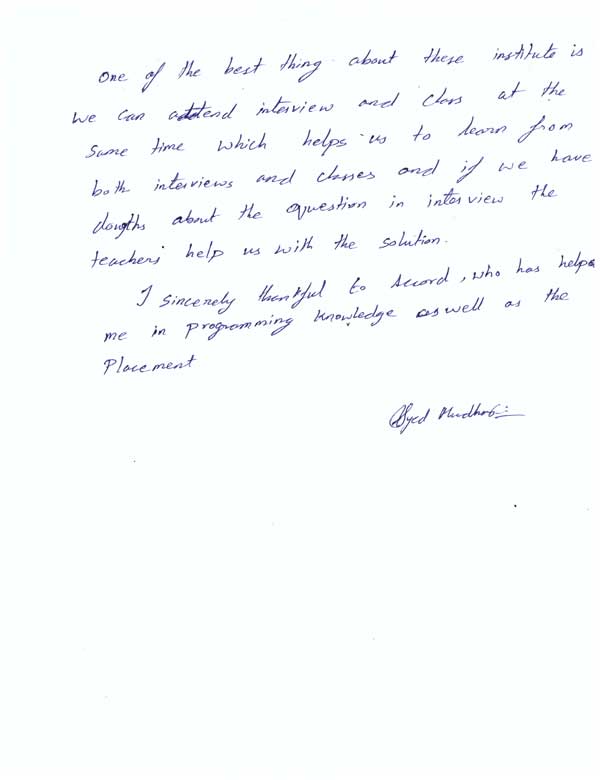 One of the best thing about these institute is
we can attend interview and class at the
same time which helps us to learn from
both interviews and classes and if we have
doughts about the question in interview the
teachers help us with the solution.
I sincerely thankful to Accord, who has helped
me in programming knowledge aswell as the
Placement
Syed